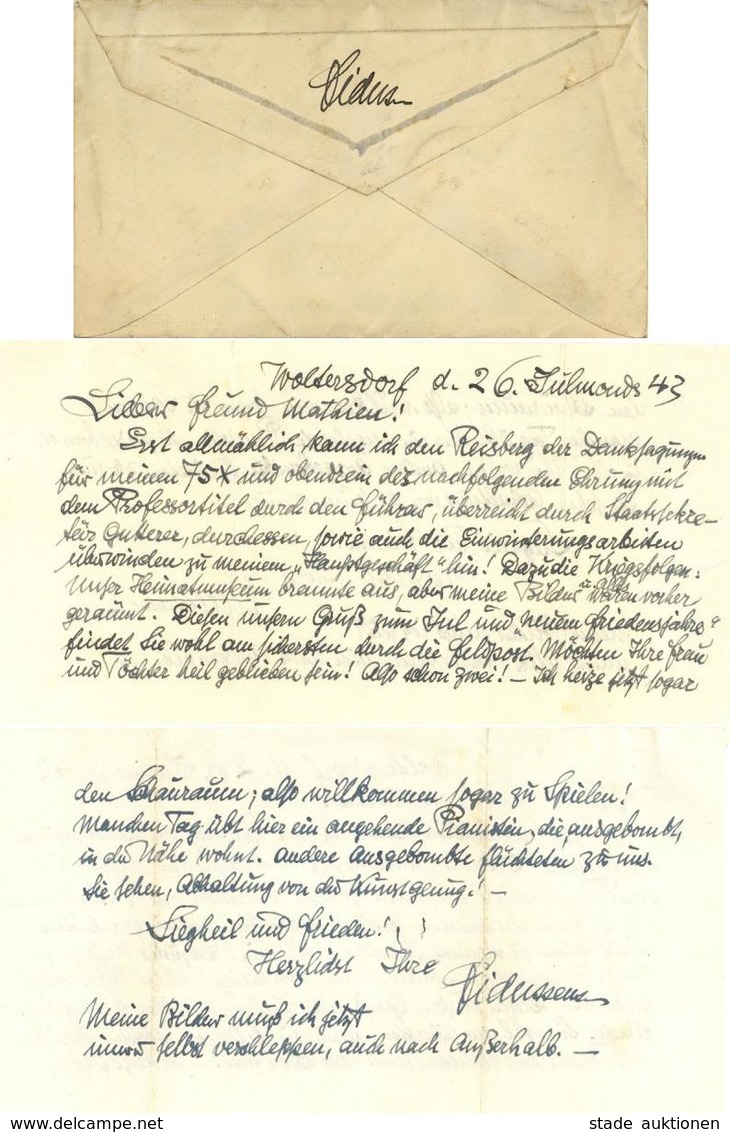 Fidus
Woltersdorf d. 26. Julmonds 43
Lieber Freund Mathien!
Erst allmählich kann ich den Reisberg der Danksagungen
für meinen 75 und obendrein der nachfolgenden Ehrung mit
dem Professortitel durch den Führer, überreicht durch Staatssekre-
tär Gutterer, durchessen, sowie auch die Einwinterungsarbeiten
überwinden zu meinem "Hauptgeschäft" hin! Dazu die Kriegsfolgen:
Unser Heimatmuseum brannte aus, aber meine Bilder waren vorher
geräumt. Diesen unsern Gruß zum Jul und "neuen Friedensjahre"
findet Sie wohl am sichersten durch die Feldpost. Möchten Ihre Frau
und Töchter heil geblieben sein! Also schon zwei! – Ich heize jetzt sogar
den Schauraum; also willkommen sogar zu Spielen!
Manchen Tag übt hier ein angehende Pianistin, die, ausgebombt,
in der Nähe wohnt. Andere Ausgebombte flüchteten zu uns.
Sie sehen, Abhaltung von der Kunst genug! –
Siegheil und Frieden!
Herzlichst Ihre
Fidussens
Meine Bilder muß ich jetzt
immer selbst verschleppen, auch nach Außerhalb. –
stade auktionen